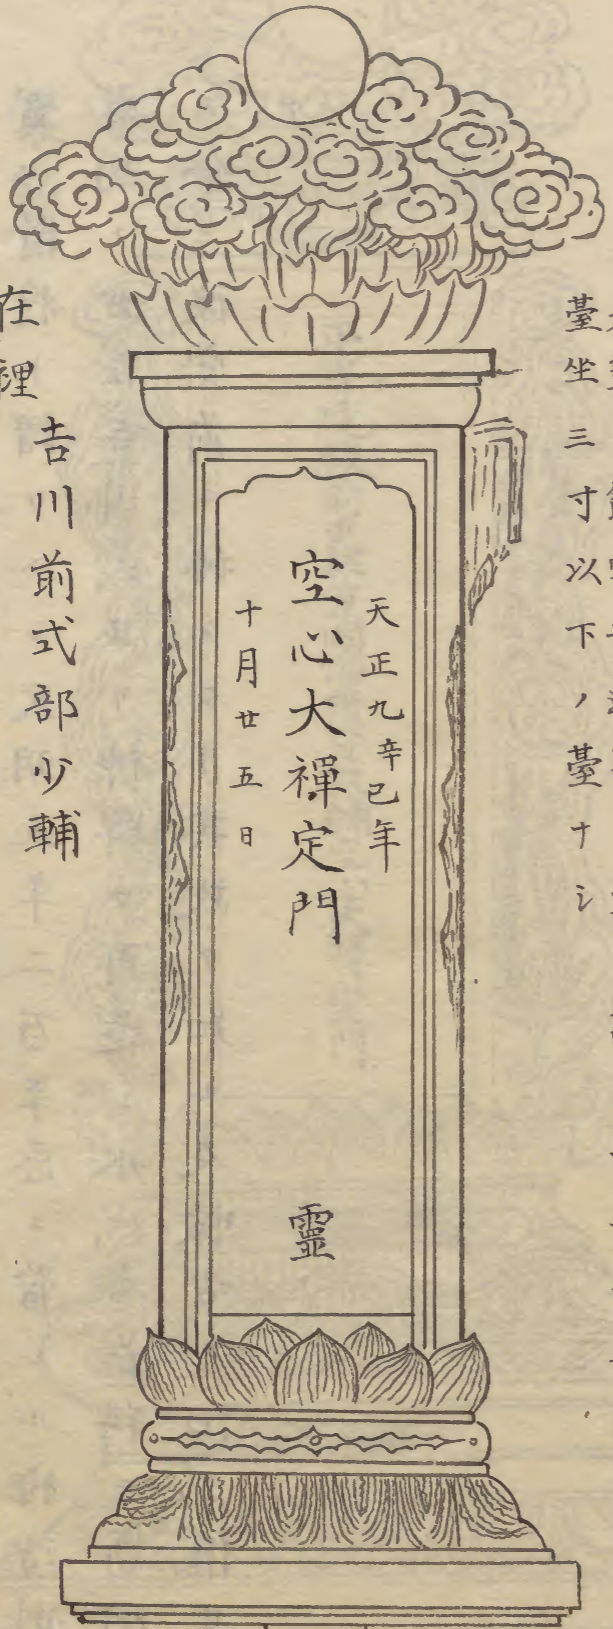 臺坐三寸以下ノ臺ナシ
天正九辛巳年
空心大禪定門
靈
十月廿五日
在裡
吉川前式部少輔